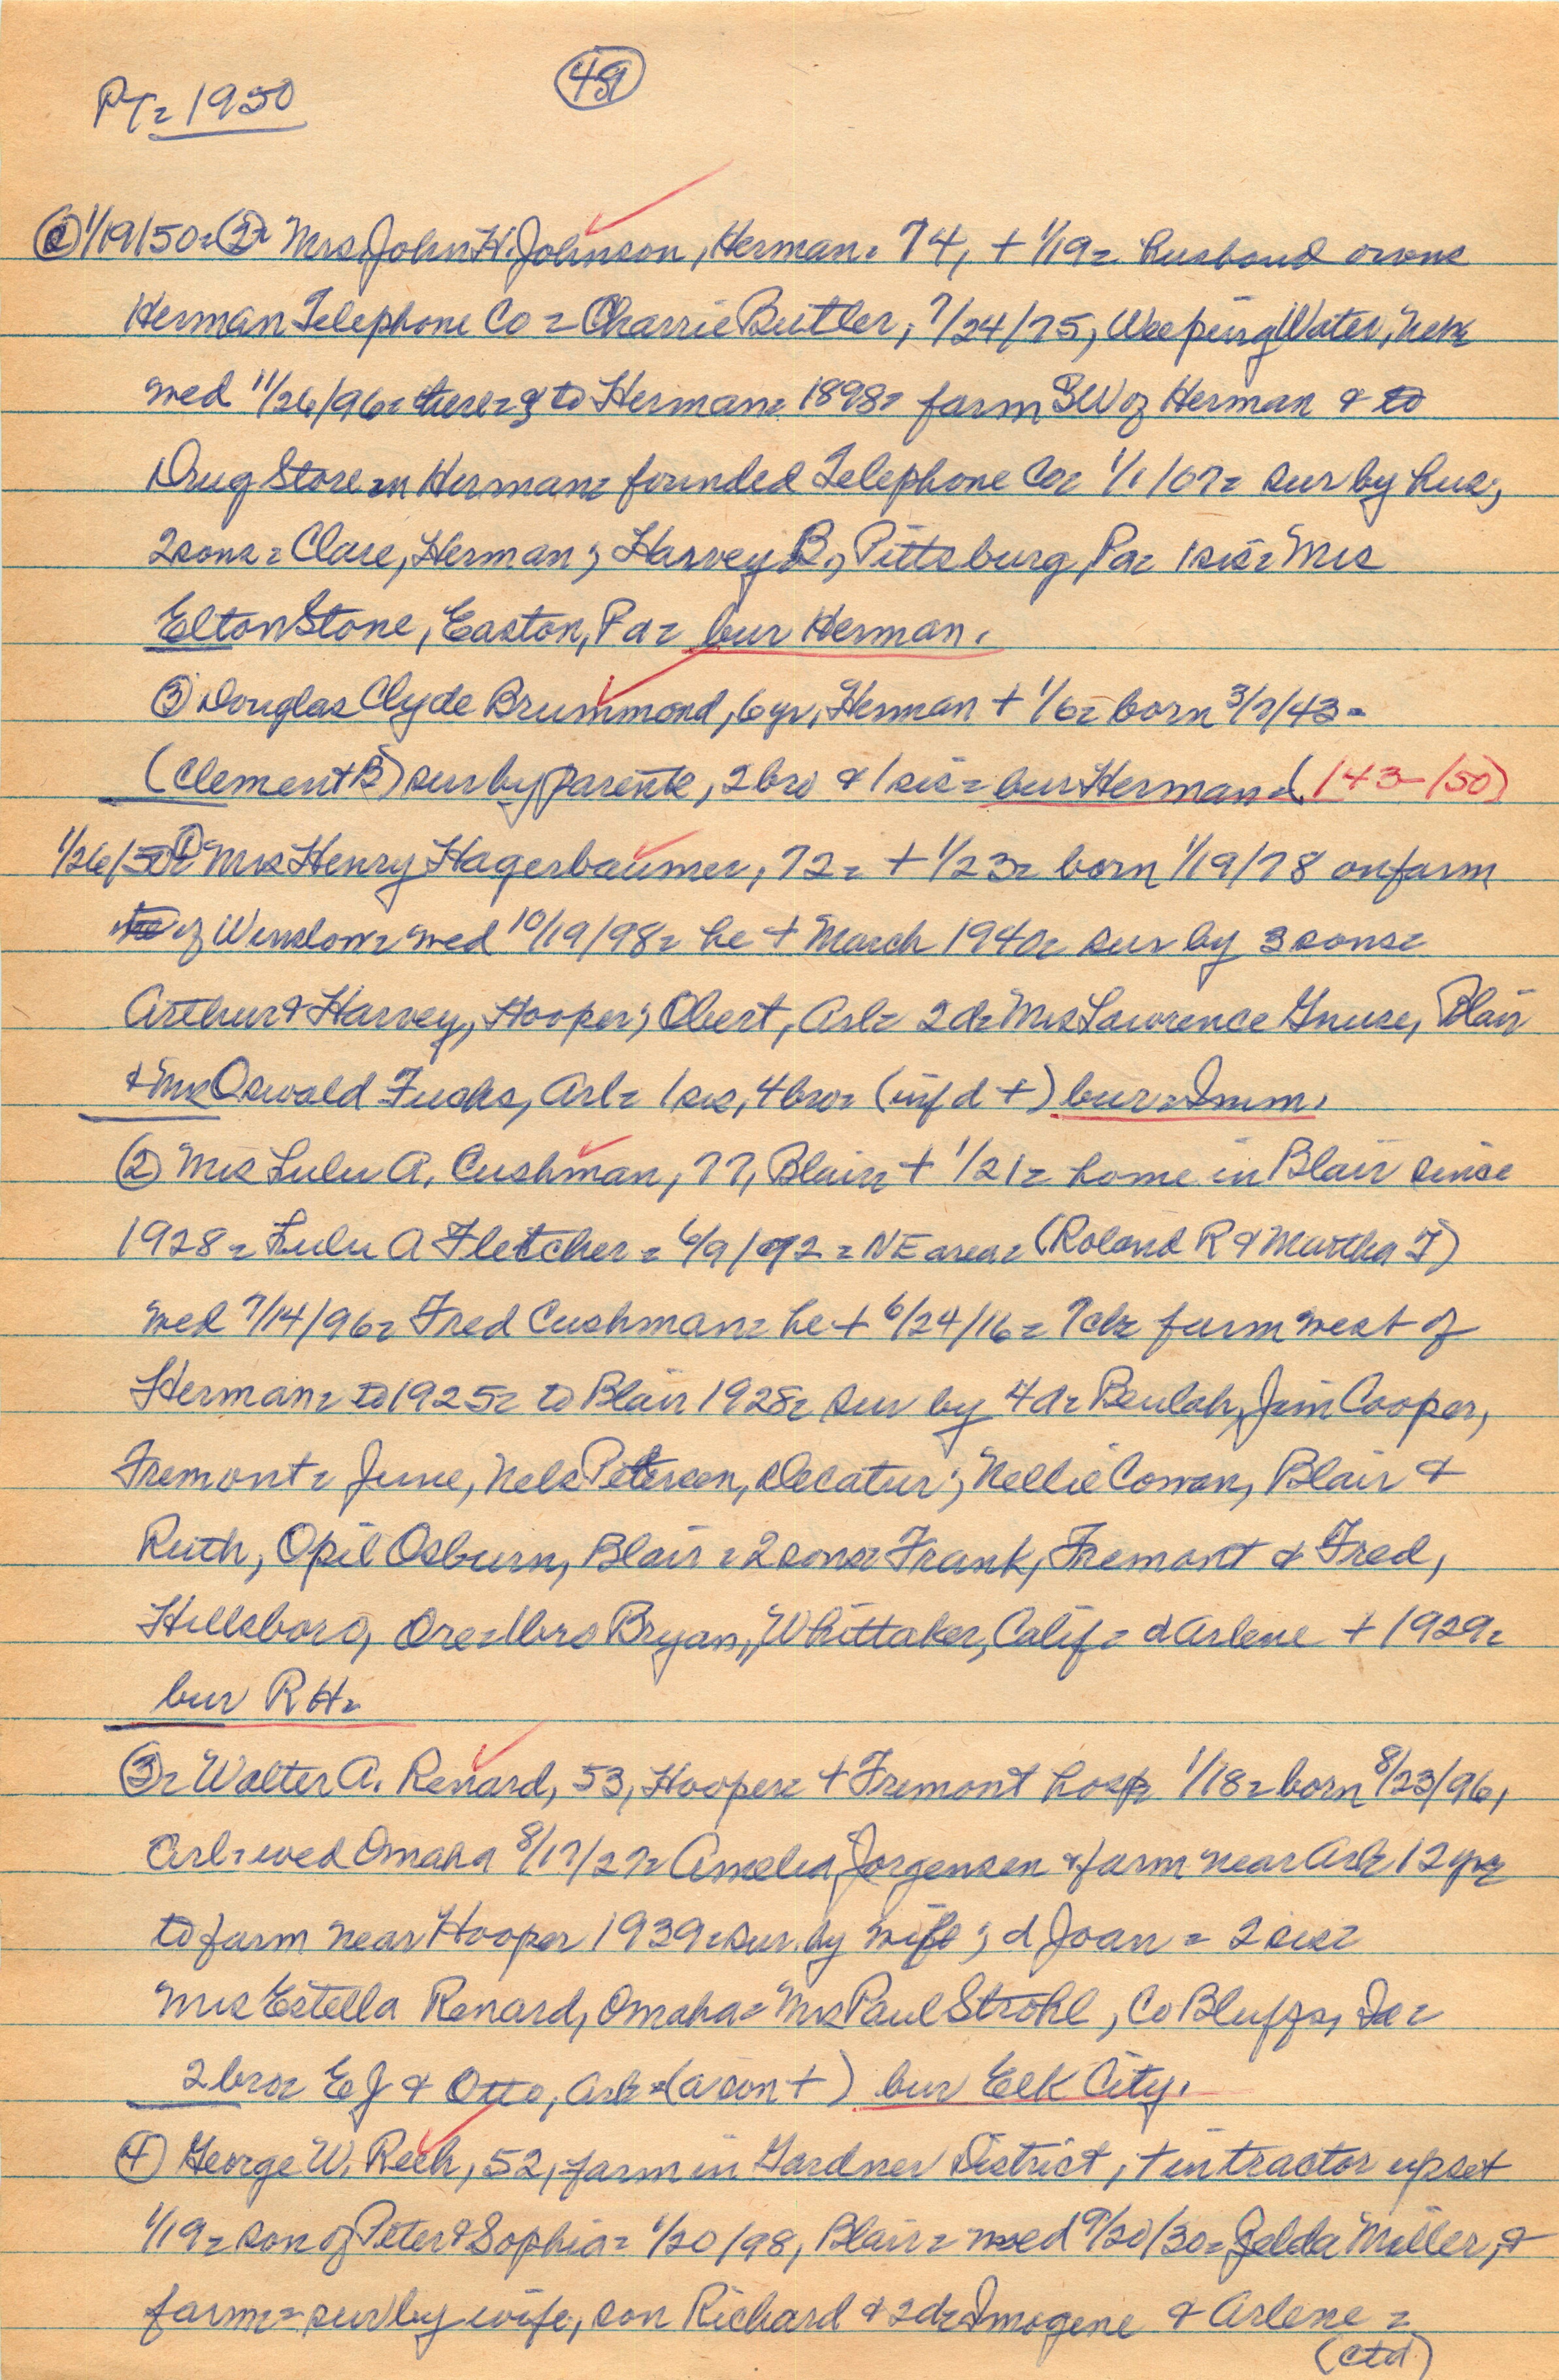 PT= 1950
49
1/19/50= (2)= Mrs John H. Johnson, Herman. 74, + 1/19= husband owns
Herman Telephone Co = Charrie Butler, 7/24/75, Weeping Water, Neb=
wed 11/26/96= there= & to Herman= 1898= farm SW of Herman & to
Drug Store in Herman= founded Telephone Co= 1/1/07= sur by hus;
2 sons= Clare, Herman; Harvey B., Pittsburg, Pa= 1 sis= Mrs
Elton Stone, Easton, Pa= bur Herman.
(3) Douglas Clyde Brummond, 6 yr, Herman + 1/6= born 3/7/43=
(Clement B) sur by parents, 2 bro & 1 sis= bur Herman= (143-150)
1/26/50= (1) Mrs Henry Hagerbaumer, 72= + 1/23= born 1/19/78 on farm
of Winslow= wed 10/19/98= he + March 1940= sur by 3 sons=
Arthur & Harvey, Hooper; Obert, Arl= 2d= Mrs Lawrence Gnuse, Blair
& Mrs Oswald Fuchs, Arl= 1 sis, 4 bro= (inf d +) bur= Imm.
(2) Mrs Lulu A. Cushman, 77, Blair= + 1/21= home in Blair since
1928= Lulu A Fletcher= 6/9/72= NE area= (Roland R & Martha J)
wed 7/14/96= Fred Cushman= he + 6/24/16= 7ch= farm west of
Herman= to 1925= to Blair 1928= sur by 4d= Beulah, Jim Cooper,
Fremont= June, Nels Petersen, Decatur; Nellie Cowan, Blair &
Ruth, Opil Osburn, Blair= 2 sons= Frank, Fremont & Fred,
Hillsboro, Ore= 1 bro Bryan, Whittaker, Calif= d Arlene + 1929=
bur RH=
(3)= Walter A. Renard, 53, Hooper= + Fremont hosp= 1/18= born 8/23/96,
Arl= wed Omaha 8/17/27= Amelia Jorgensen & farm near Arl= 12 yr=
to farm near Hooper 1939= sur by wife; d Joan= 2 sis=
Mrs Estella Renard, Omaha= Mrs Paul Strohl, Co Bluffs, Ia=
2 bro= E J & Otto, Arl= (a son +) bur Elk City.
(4) George W. Rech, 52, farm in Gardner District, + in tractor upset
1/19= son of Peter & Sophia= 1/20/98, Blair= wed 9/20/30= Zelda Miller, &
farm= sur by wife, son Richard & 2d= Imogene & Arlene=
(ctd)